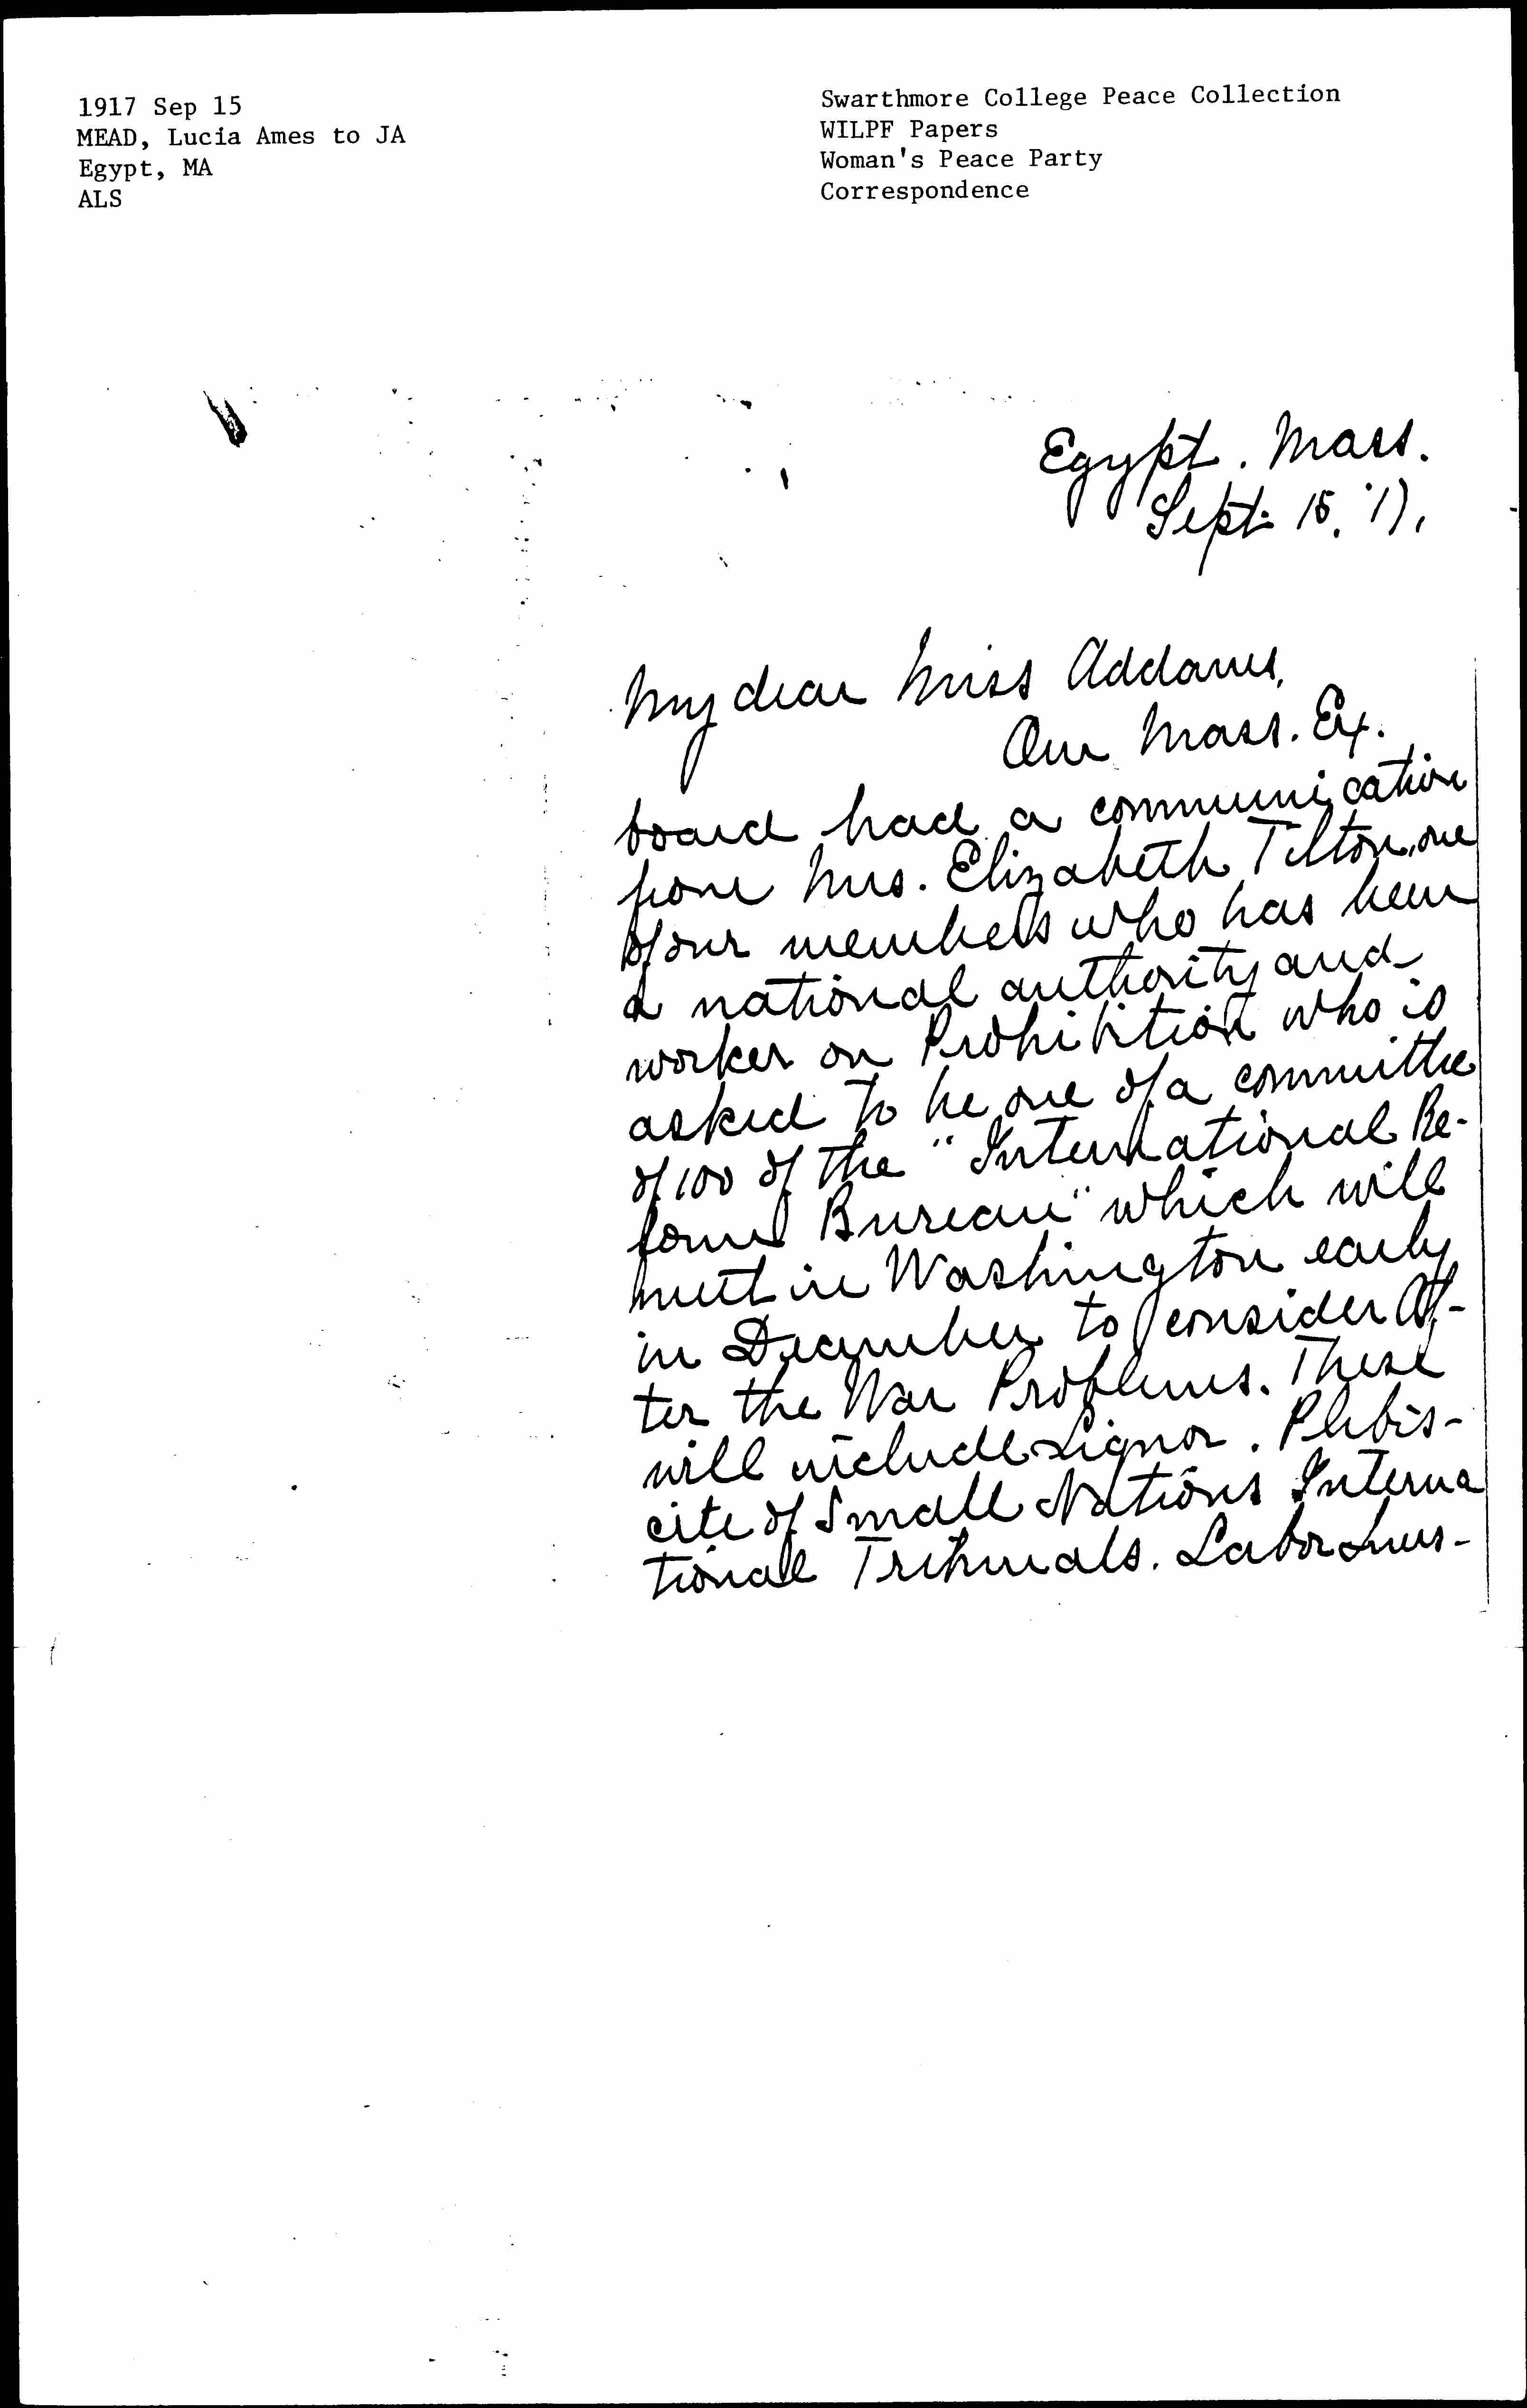 1917 Sep 15
MEAD, Lucia Ames to JA
Egypt, MA
ALS
Swarthmore College Peace Collection
WILPF Papers
Woman's Peace Party
Correspondence
Egypt. Mass.
Sept. 15. '17.
My dear Miss Addams,
Our Mass. Ex.
board had a communication
from Mrs. Elizabeth Tilton, one
of our members who has been
a national authority and
worker on Prohibition who is
asked to be one of a committee
of 100 of the "International Re-
form Bureau" which will
meet in Washington early
in December to consider Af-
ter the War Problems. These
will include Liquor. Plebis-
cite of Small Nations Interna
tional Tribunals. Labor